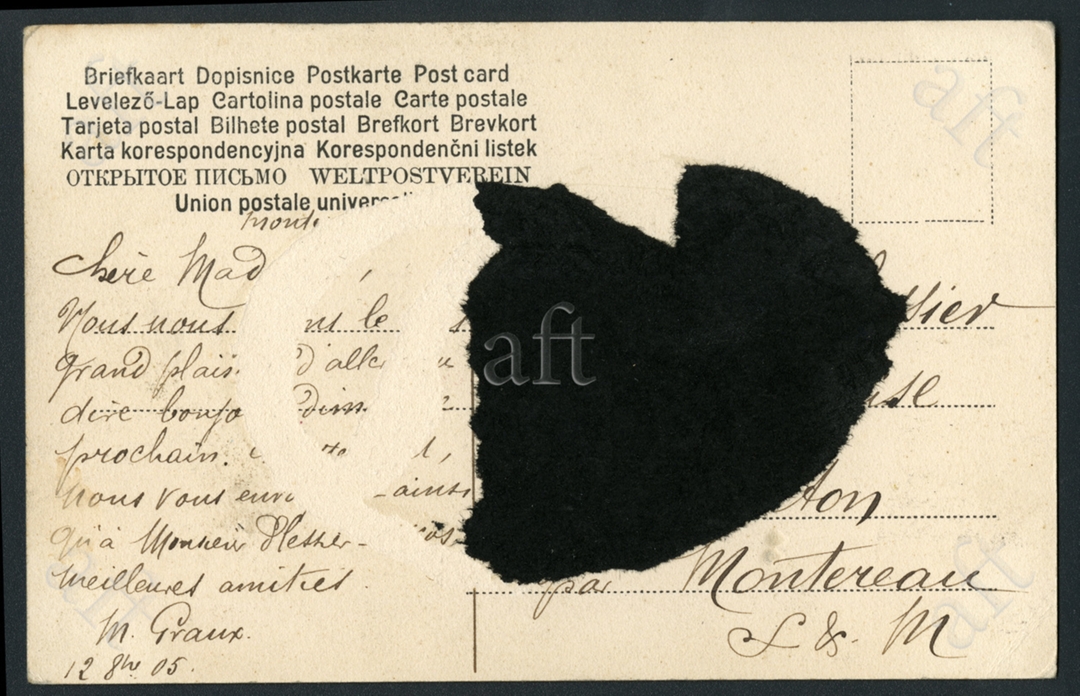 Briefkaart Dopisnice Postkarte Post card
Levelező-Lap Cartolina postale Carte postale
Tarjeta postal Bilhete postal Brefkort Brevkort
Karta korespondencyjna Korespondenčni listek
ОТКРЫТОЕ ПИСЬМО WELTPOSTVEREIN
Union postale
Chère Mad
Vous nous le
grand plais d'alle
dire bonjo dim
prochain.
nous vous envo - ainsi
qu'à Monsieur Plessier -
meilleures amitiés.
M. Graux.
12 8bre 05.
ssier
use
ton
par Montereau
S & M
aft
aft
aft
aft
aft